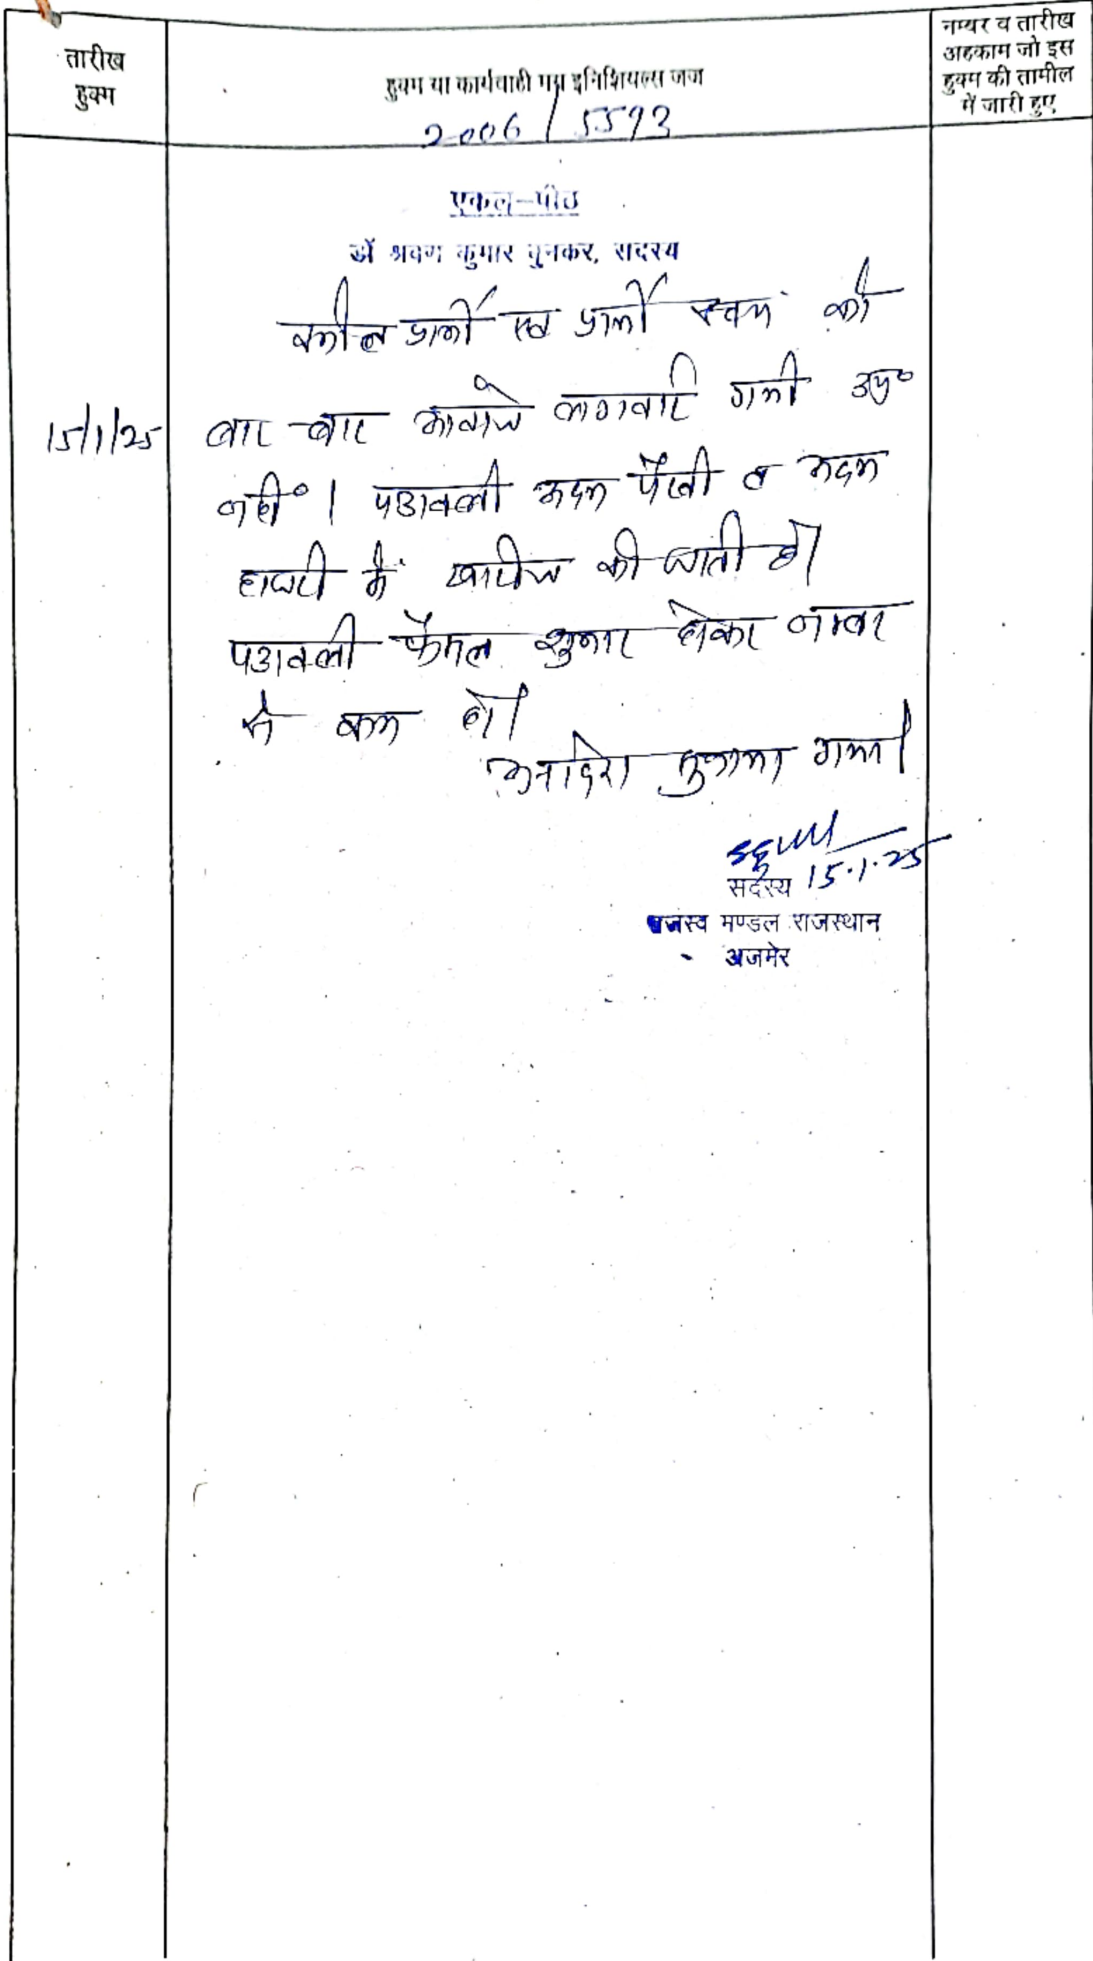 तारीख
हुक्म
हुक्म या कार्यवाही मय इनिशियल्स जज
नम्बर व तारीख
अहकाम जो इस
हुक्म की तामील
में जारी हुए
2006/5593
एकल-पीठ
डॉ श्रवण कुमार बुनकर, सदस्य
वकील प्रार्थी एवं प्रार्थी स्वयं को
15/1/25
बार-बार आवाजे लगवाई गयी उप०
नहीं । पत्रावली अदम पैरवी व अदम
हाजरी में खारीज की जाती है।
पत्रावली फैसल शुमार होकर नम्बर
से कम हो।
आदेश सुनाया गया।
15.1.25
सदस्य
राजस्व मण्डल राजस्थान
अजमेर